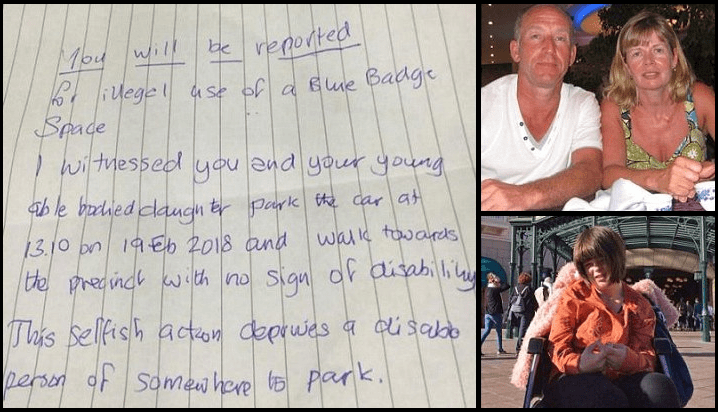 You will be reported
for illegal use of a Blue Badge
Space
I witnessed you and your young
able bodied daughter park the car at
13.10 on 19 Feb 2018 and walk towards
the precinct with no sign of disability
This selfish action deprives a disable
person of somewhere to park.